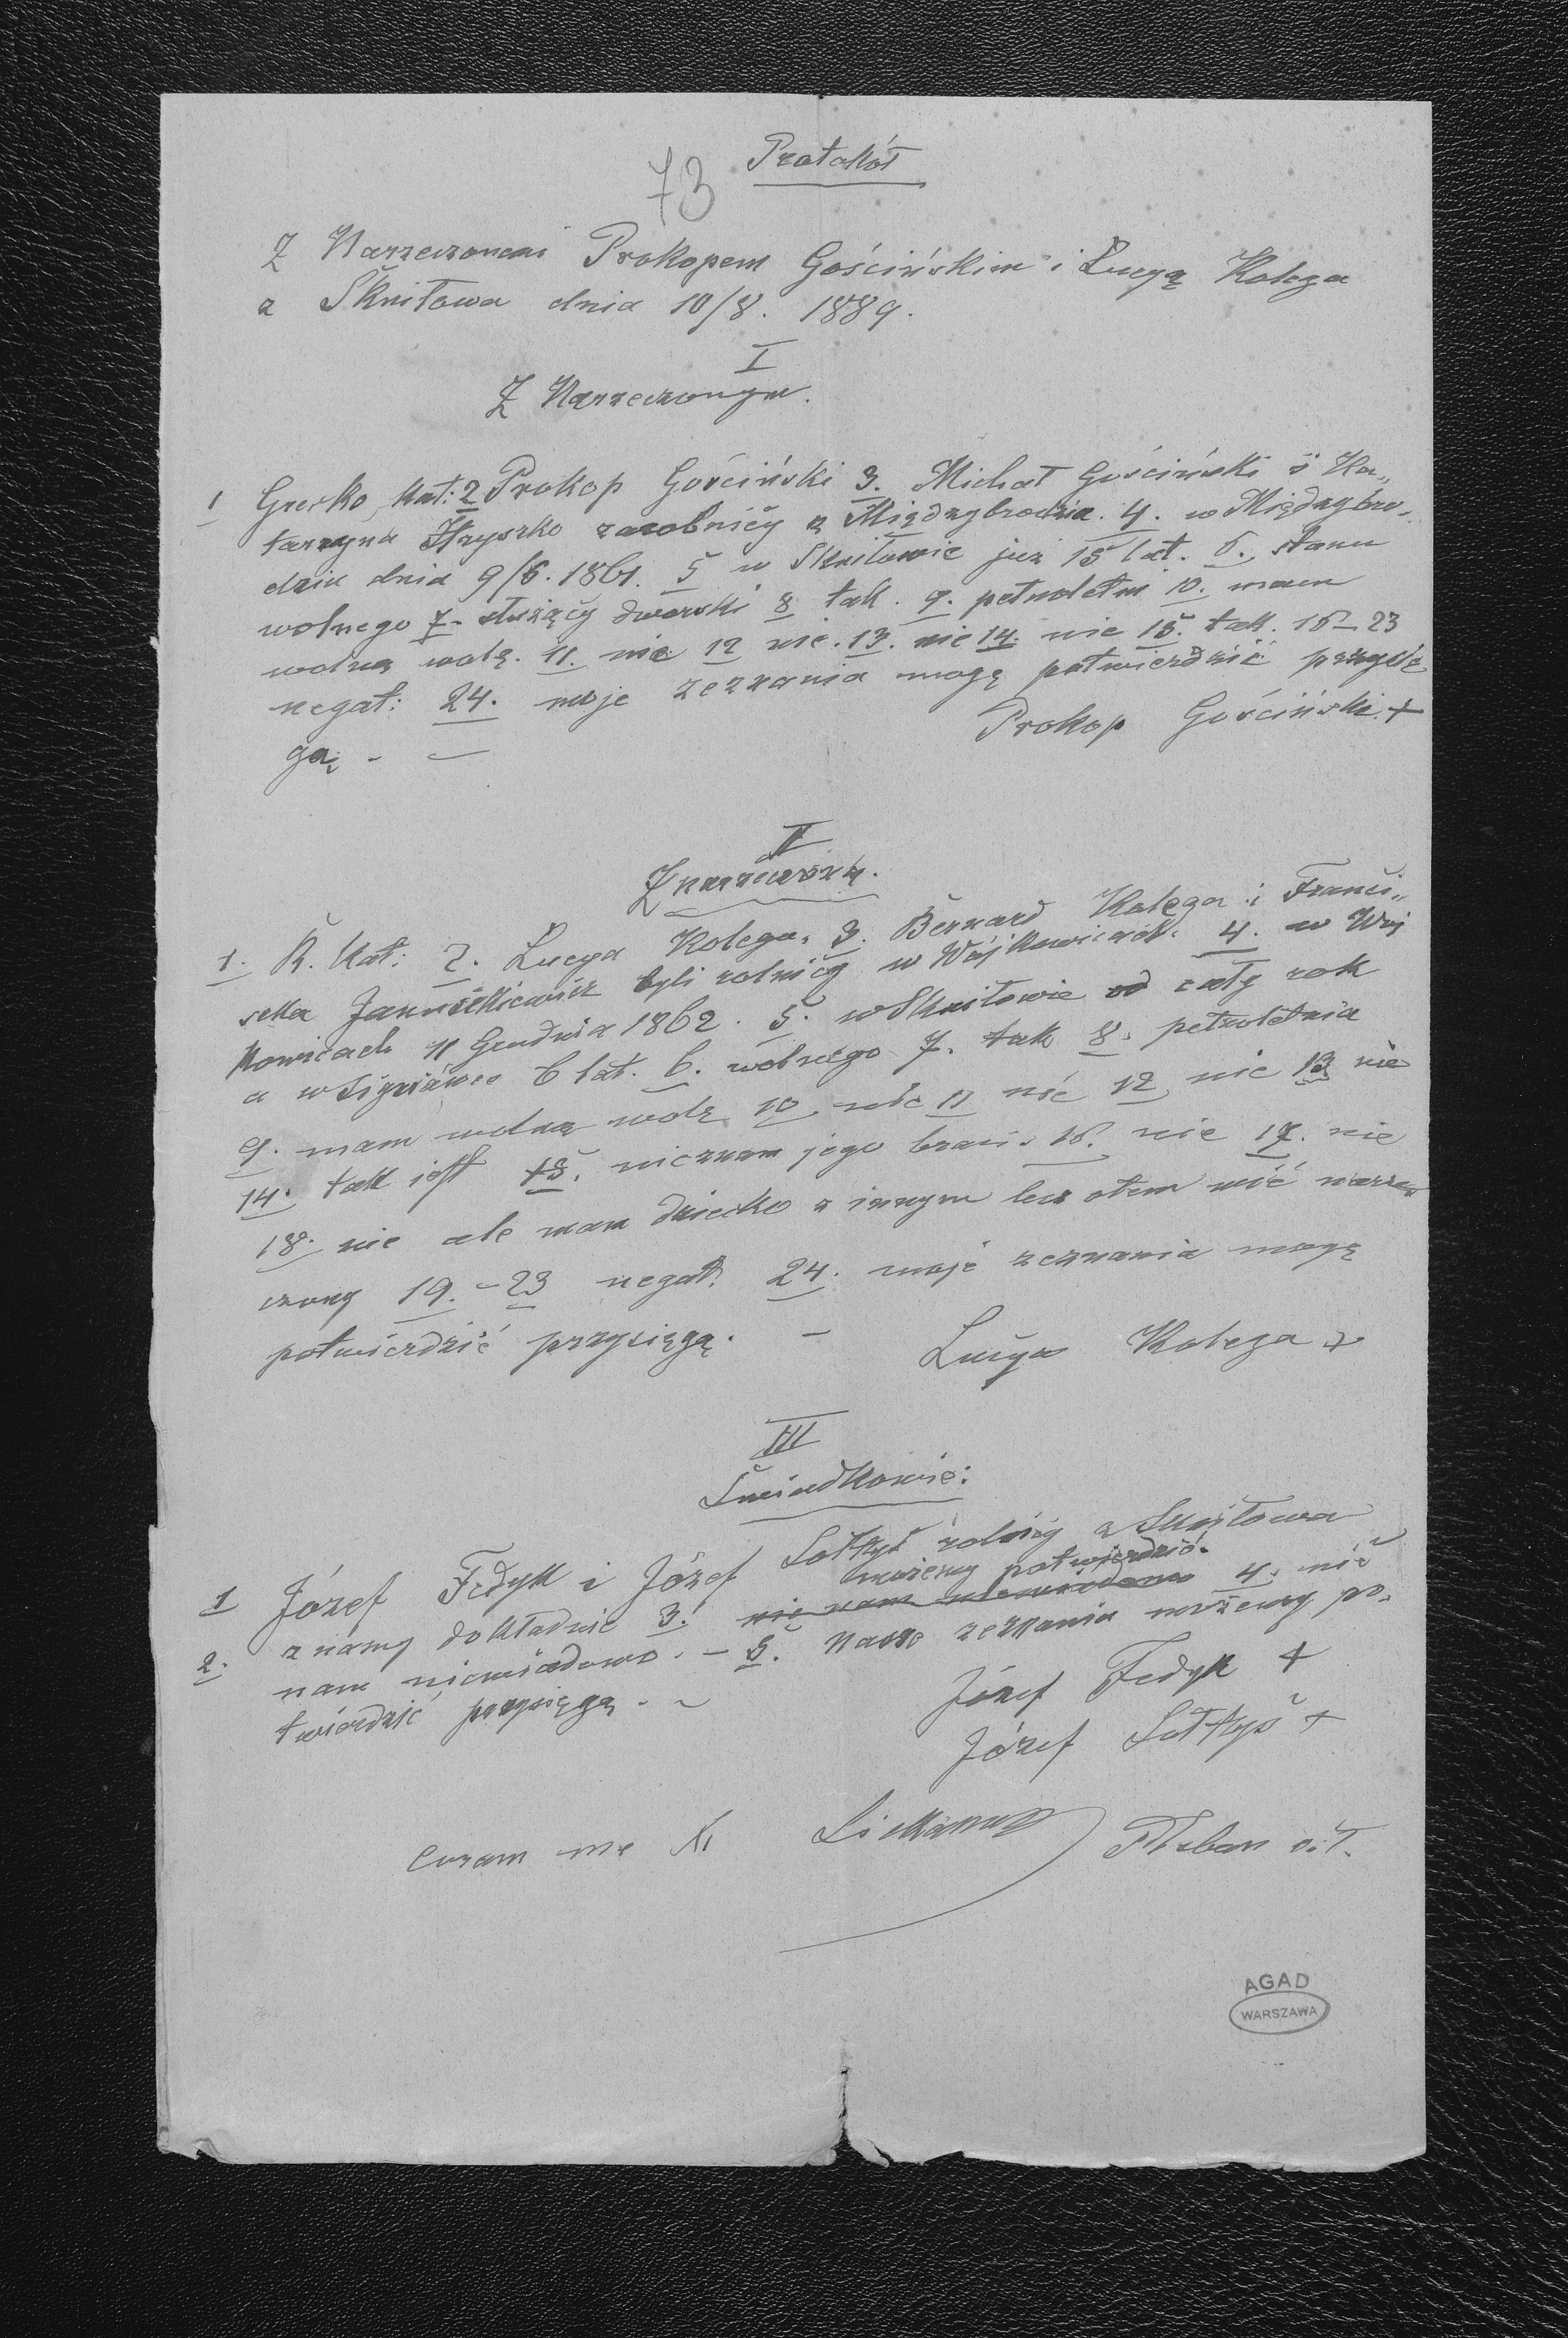 Protokół
73
Z Narzeczonemi Prokopem Gościńskim i Lucyą Kolega
z Skniłowa dnia 10/8. 1889.
I
Z Narzeczonym.
1 Grecko, kat: 2 Prokop Gościński 3. Michał Gościński i Ka„
tarzyna Hryszko zarobnicy z Międzybrodzia. 4. w Międzybro„
dziu dnia 9/6. 1861. 5 w Skniłowie już 15 lat. 6. stanu
wolnego 7. służący dworski 8 tak. 9. pełnoletni 10. mam
wolną wolę. 11. nie 12 nie. 13. nie 14. nie 15. tak. 16–23
negat: 24. moje zeznania mogę potwierdzić przysię
gą. –
Prokop Gościński. +
II
Z narzeczoną.
1. R. kat: 2. Lucya Kolega. 3. Bernard Kolega i Franci„
szka byli rolnicy w Wójkowicach. 4. w Wój
kowicach 11 Grudnia 1862. 5. w Skniłowie od cały rok
a w 6 lat. 6. wolnego 7. tak 8. pełnoletnia
9. mam wolną wolę 10. nie 11 nie 12 nie 13 nie
14. tak jest 15. nieznam jego braci. 16. nie 17. nie
18. nie ale mam dziecko z innym lecz otem wié narze„
czony 19.–23 negat. 24. moje zeznania mogę
potwierdzić przysięgą. –
Lucya Kolega +
III
Świadkowie:
1 Józef Fedyk i Józef Sołtys rolnicy z Skniłowa
możemy potwierdzić.
2. znamy dokładnie 3. nie nam niewiadomo 4. nic
nam niewiadomo. – 5. Nasze zeznania możemy po„
twierdzić przysięgą. –
Józef Fedyk +
Józef Sołtys +
coram me X. Pleban o.ł.
AGAD
WARSZAWA